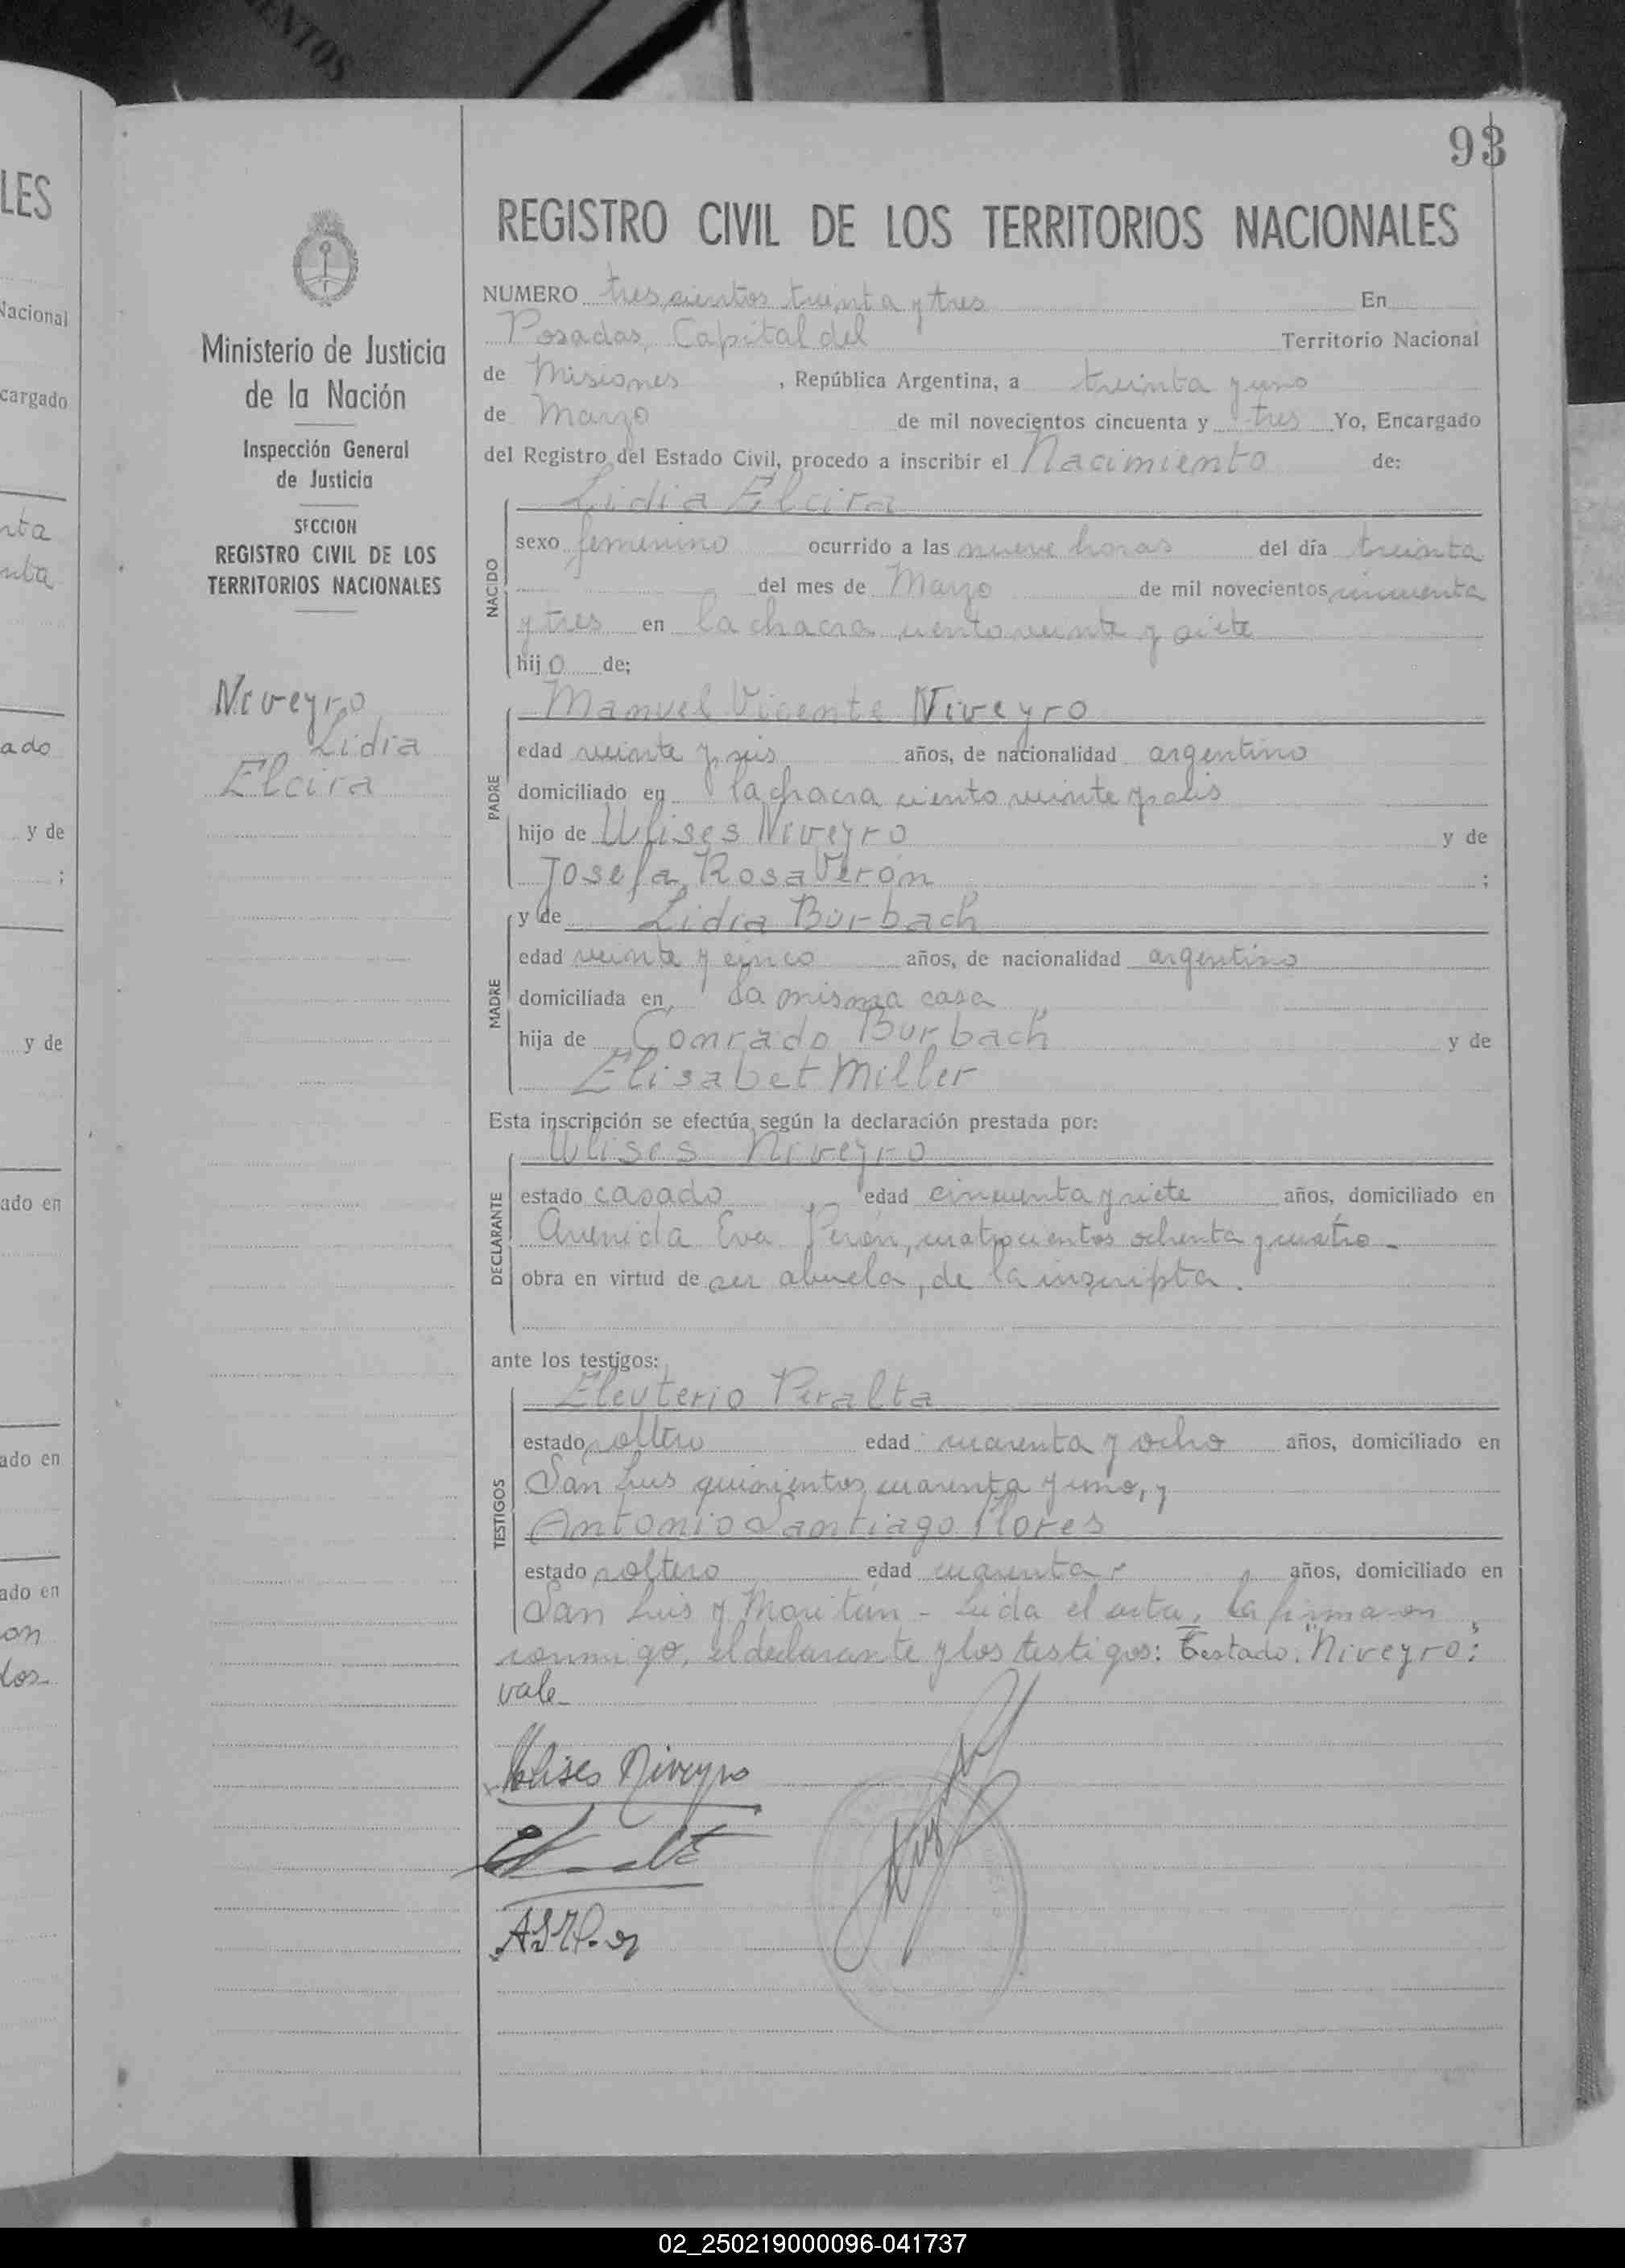 ENTOS
93
LES
REGISTRO CIVIL DE LOS TERRITORIOS NACIONALES
Nacional
cargado
nta
nta
ado
y de
;
y de
ado en
ado en
ado en
on
los
Ministerio de Justicia
de la Nación
Inspección General
de Justicia
SECCION
REGISTRO CIVIL DE LOS
TERRITORIOS NACIONALES
Niveyro
Lidia
Elcira
NUMERO trescientos treinta y tres En
Posadas, Capital del Territorio Nacional
de Misiones , República Argentina, a treinta y uno
de Marzo de mil novecientos cincuenta y tres Yo, Encargado
del Registro del Estado Civil, procedo a inscribir el Nacimiento de:
NACIDO
Lidia Elcira
sexo femenino ocurrido a las nueve horas del día treinta
del mes de Marzo de mil novecientos cincuenta
y tres en la chacra ciento veinte y siete
hijo de:
PADRE
Manuel Vicente Niveyro
edad veinte y seis años, de nacionalidad argentino
domiciliado en la chacra ciento veinte y seis
hijo de Ulises Niveyro y de
Josefa Rosa Verón ;
MADRE
y de Lidia Burbach
edad veinte y cinco años, de nacionalidad argentino
domiciliada en la misma casa
hija de Conrado Burbach y de
Elisabet Miller
Esta inscripción se efectúa según la declaración prestada por:
DECLARANTE
Ulises Niveyro
estado casado edad cincuenta y siete años, domiciliado en
Avenida Eva Perón, cuatrocientos ochenta y cuatro -
obra en virtud de ser abuelo, de la inscripta.
ante los testigos:
TESTIGOS
Eleuterio Peralta
estado soltero edad cuarenta y ocho años, domiciliado en
San Luis quinientos cuarenta y uno, y
Antonio Santiago Flores
estado soltero edad cuarenta años, domiciliado en
San Luis y Moritán - Leida el acta, la firmaron
conmigo, el declarante y los testigos: Testado: "Niveyro":
vale-
Ulises Niveyro
02_250219000096-041737